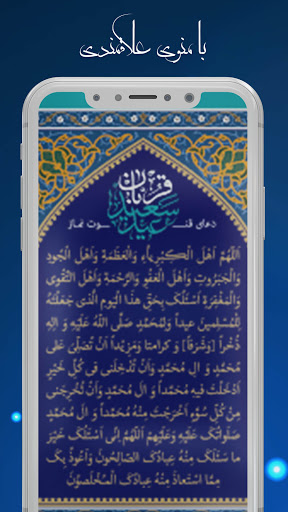 با منوی علاقمندی
عید سعید قربان
دعای قنوت نماز
اَللّهُمَّ اَهْلَ الْكِبْرِیاَّءِ وَالْعَظَمَةِ وَاَهْلَ الْجُودِ
وَالْجَبَرُوتِ وَاَهْلَ الْعَفْوِ وَالرَّحْمَةِ وَاَهْلَ التَّقْوى
وَالْمَغْفِرَةِ اَسْئَلُكَ بِحَقِّ هذَا الْیَومِ الَّذى جَعَلْتَهُ
لِلْمُسْلِمینَ عیداً وَلِمُحَمَّدٍ صَلَّى اللَّهُ عَلَیْهِ وَ الِهِ
ذُخْراً [وَشَرَفاً] وَ كرامتاً وَمَزِیْداً اَنْ تُصَلِّىَ عَلى
مُحَمَّدٍ وَ الِ مُحَمَّدٍ وَاَنْ تُدْخِلَنى فى كُلِّ خَیْرٍ
اَدْخَلْتَ فیهِ مُحَمَّداً وَ الَ مُحَمَّدٍ وَاَنْ تُخْرِجَنى
مِنْ كُلِّ سُوَّءٍ اَخْرَجْتَ مِنْهُ مُحَمَّداً وَ الَ مُحَمَّدٍ
صَلَواتُكَ عَلَیْهِ وَعَلَیْهِمْ اَللّهُمَّ اِنّى اَسْئَلُكَ خَیْرَ
ما سَئَلَكَ مِنْهُ عِبادُكَ الصّالِحُونَ وَاَعُوذُ بِكَ
مِمَّا اسْتَعاذَ مِنْهُ عِبادُكَ الْمُخْلَصُونَ